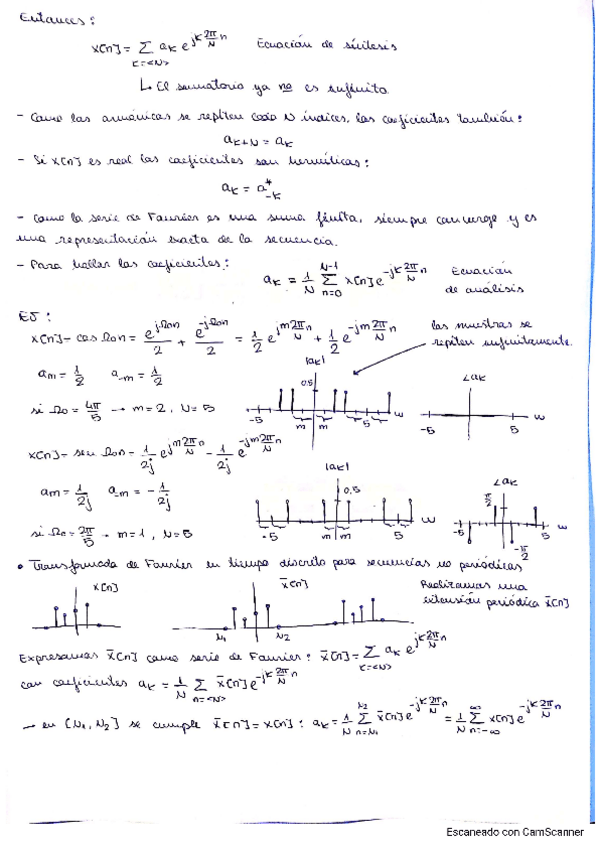 Entonces:
x[n] = Σ_{k=<N>} a_k e^{jk(2π/N)n} Ecuación de síntesis
↳ El sumatorio ya no es infinito
- Como los armónicos se repiten cada N índices, los coeficientes también:
a_{k+N} = a_k
- Si x[n] es real los coeficientes son hermíticos:
a_k = a*_{-k}
- Como la serie de Fourier es una suma finita, siempre converge y es
una representación exacta de la secuencia.
- Para hallar los coeficientes: a_k = 1/N Σ_{n=0}^{N-1} x[n] e^{-jk(2π/N)n} Ecuación
de análisis
EJ:
x[n] = cos Ω₀n = e^{jΩ₀n}/2 + e^{-jΩ₀n}/2 = 1/2 e^{jm(2π/N)n} + 1/2 e^{-jm(2π/N)n} las muestras se
repiten infinitamente.
a_m = 1/2 a_{-m} = 1/2 |a_k| ∠a_k
0.5
si Ω₀ = 4π/5 → m = 2, N = 5 -5 m m 5 ω -5 5
x[n] = sen Ω₀n = 1/2j e^{jm(2π/N)n} - 1/2j e^{-jm(2π/N)n}
a_m = 1/2j a_{-m} = -1/2j |a_k| 0,5 ∠a_k π/2
si Ω₀ = 2π/5 → m = 1, N = 5 -5 m m 5 ω -5 -π/2 5 ω
• Transformada de Fourier en tiempo discreto para secuencias no periódicas
x[n] x̄[n] Realizamos una
extensión periódica x̄[n]
N₁ N₂
Expresamos x̄[n] como serie de Fourier: x̄[n] = Σ_{k=<N>} a_k e^{jk(2π/N)n}
con coeficientes a_k = 1/N Σ_{n=<N>} x̄[n] e^{-jk(2π/N)n}
→ en [N₁, N₂] se cumple x̄[n] = x[n]: a_k = 1/N Σ_{n=N₁}^{N₂} x̄[n] e^{-jk(2π/N)n} = 1/N Σ_{n=-∞}^{∞} x[n] e^{-jk(2π/N)n}
Escaneado con CamScanner